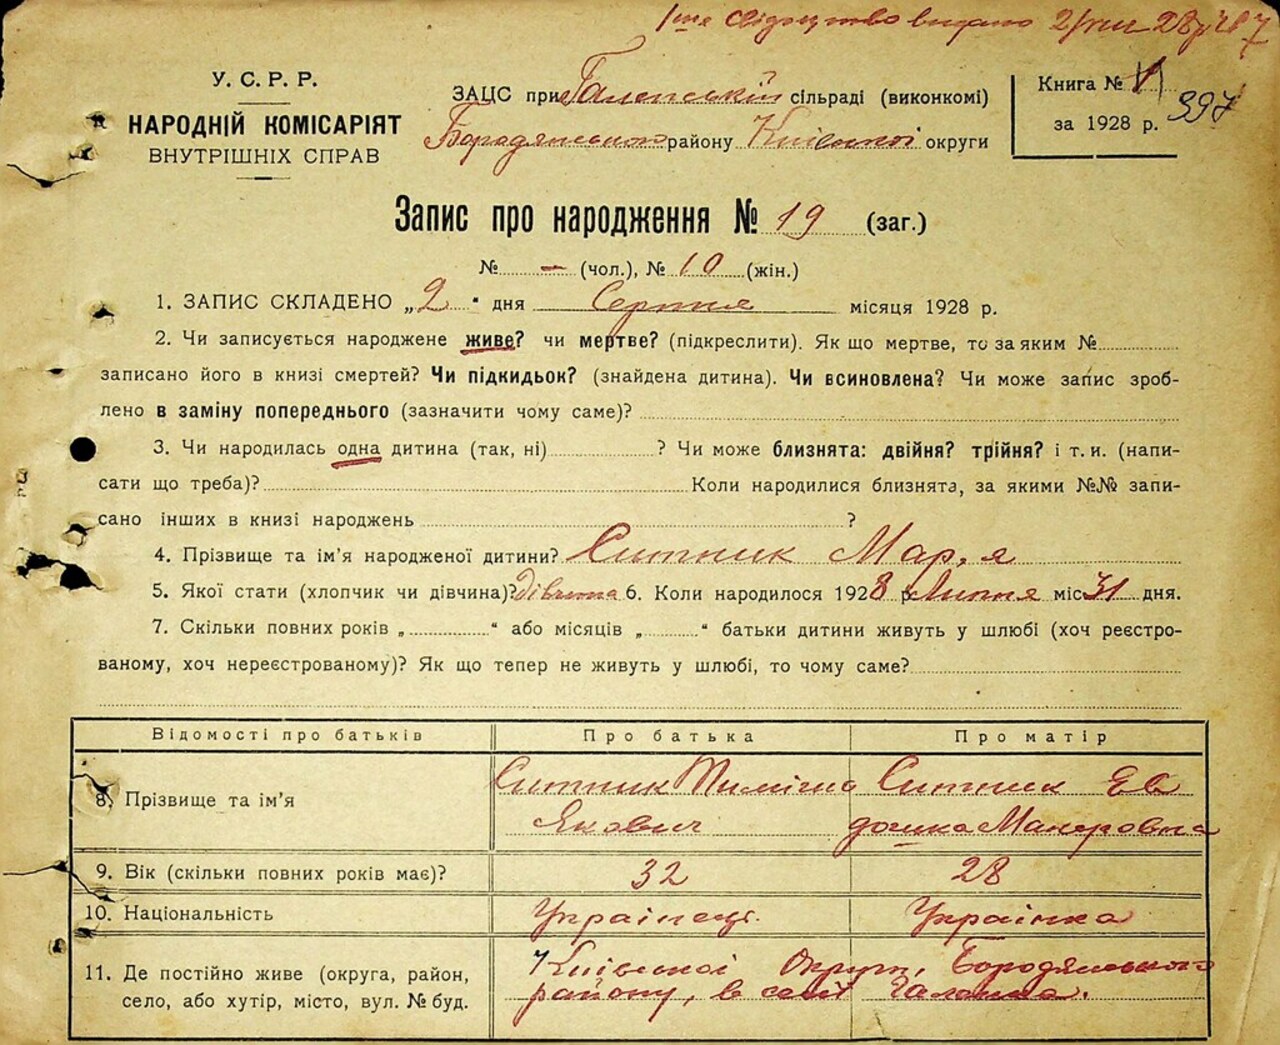 1ше свідоцтво видано 2/VIII 28 р. №7
У. С. Р. Р.
НАРОДНІЙ КОМІСАРІЯТ
ВНУТРІШНІХ СПРАВ
ЗАЦС при Галенській сільраді (виконкомі)
Бородянського району Київської округи
Книга № 1
397
за 1928 р.
Запис про народження № 19 (заг.)
№ — (чол.), № 10 (жін.)
1. ЗАПИС СКЛАДЕНО „2“ дня Серпня місяця 1928 р.
2. Чи записується народжене живе? чи мертве? (підкреслити). Як що мертве, то за яким №
записано його в книзі смертей? Чи підкидьок? (знайдена дитина). Чи всиновлена? Чи може запис зроб-
лено в заміну попереднього (зазначити чому саме)?
3. Чи народилась одна дитина (так, ні) ? Чи може близнята: двійня? трійня? і т. и. (напи-
сати що треба)? Коли народилися близнята, за якими №№ запи-
сано інших в книзі народжень ?
4. Прізвище та ім’я народженої дитини? Ситник Мар,я
5. Якої стати (хлопчик чи дівчина)? дівчина 6. Коли народилося 1928 р. Липня міс 31 дня.
7. Скільки повних років „ “ або місяців „ “ батьки дитини живуть у шлюбі (хоч реєстро-
ваному, хоч нереєстрованому)? Як що тепер не живуть у шлюбі, то чому саме?
Відомості про батьків Про батька Про матір
8. Прізвище та ім’я Ситник Тиміш Якович Ситник Євдошка Макаровна
9. Вік (скільки повних років має)? 32 28
10. Національність Українець. Українка
11. Де постійно живе (округа, район, Київської Округи, Бородянського
село, або хутір, місто, вул. № буд. району, в селі Галенка.